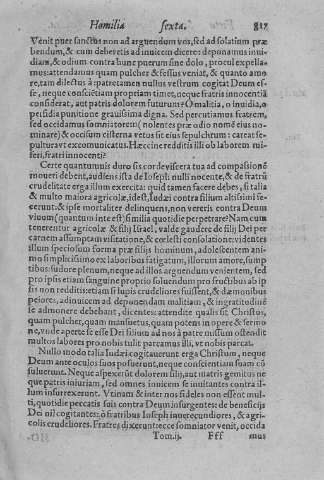 Homilia sexta. 817
Venit puer sanctus non ad arguendum vos, sed ad solatium præ
bendum, & cum deberetis ad inuicem dicere: deponamus inui-
diam, & odium contra hunc puerum sine dolo, procul expella-
mus: attendamus quam pulcher & fessus veniat, & quanto amo
re, tam dilectus à patre: tamen nullus vestrum cogitat Deum es-
se, neque conscientiam propriam timet, neque fratris innocentiã
considerat, aut patris dolorem futurum? O malitia, o inuidia, o
perfidia punitione grauissima digna. Sed percutiamus fratrem,
sed occidamus somniatorem (nolentes præ odio nomē eius no-
minare) & occisum cisterna vetus sit eius sepulchrum: careat se-
pultura vt excomunicatus. Hæccine redditis illi ob laborem mi-
seri, fratri innocenti?
Certe quantumuis duro sis corde viscera tua ad compasionē
moueri debent, audiens ista de Ioseph nulli nocente, & de fratrū
crudelitate erga illum exercita: quid tamen facere debes, si talia
& multo maiora agricolæ, idest, Iudæi contra filium altissimi fe-
cerunt: & ipse mortaliter delinquens, non vereris contra Deum
viuum (quantum in te est) similia quotidie perpetrare? Nam cum
tenerentur agricolæ & filij Israel, valde gaudere de filij Dei per
carnem assumptam visitatione, & cœlesti consolatione: videntes
illum speciosum forma præ filijs hominum, adolescentem ani-
mo simplicissimo ex laboribus fatigatum, illorum amore, sump
tibus: sudore plenum, neque ad illos arguendum venientem, sed
pro ipsis etiam sanguine proprio soluendum pro fructibus ab ip
sis non redditis: etiam si lupis crudeliores fuissent, & dæmonibus
peiores, adinuicem ad deponendam malitiam, & ingratitudinē
se admonere debebant, dicentes: attendite qualis sit Christus,
quam pulcher, quam mansuetus, quam potens in opere & sermo
ne, vnde aperte se esse Dei filium ad nos à patre missum ostendit
multos labores pro nobis tulit parcamus illi, vt nobis parcat.
Nullo modo talia Iudæi cogitauerunt erga Christum, neque
Deum ante oculos suos posuerunt, neque conscientiam suam cõ
suluerunt. Neque aspexerūt dolorem filij, aut matris gemitus ne
que patris iniuriam, sed omnes inuicem se inuitantes contra il-
lum insurrexerunt. Vtinam & inter nos fideles non essent mul-
ti, quotidie peccatis suis contra Deum insurgentes: de beneficijs
Dei nil cogitantes: ô fratribus Ioseph inuerecundiores, & agri-
colis crudeliores. Fratres dixerunt ecce somniator venit, occida
Tom. ij. Fff mus